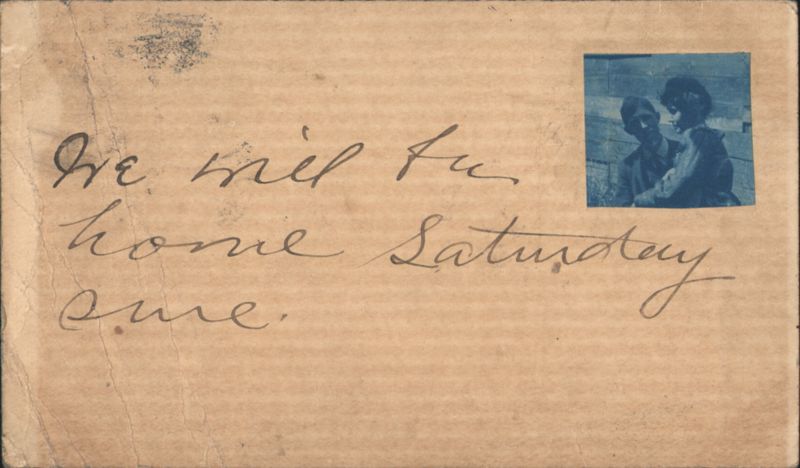 We will be
home Saturday
sure.